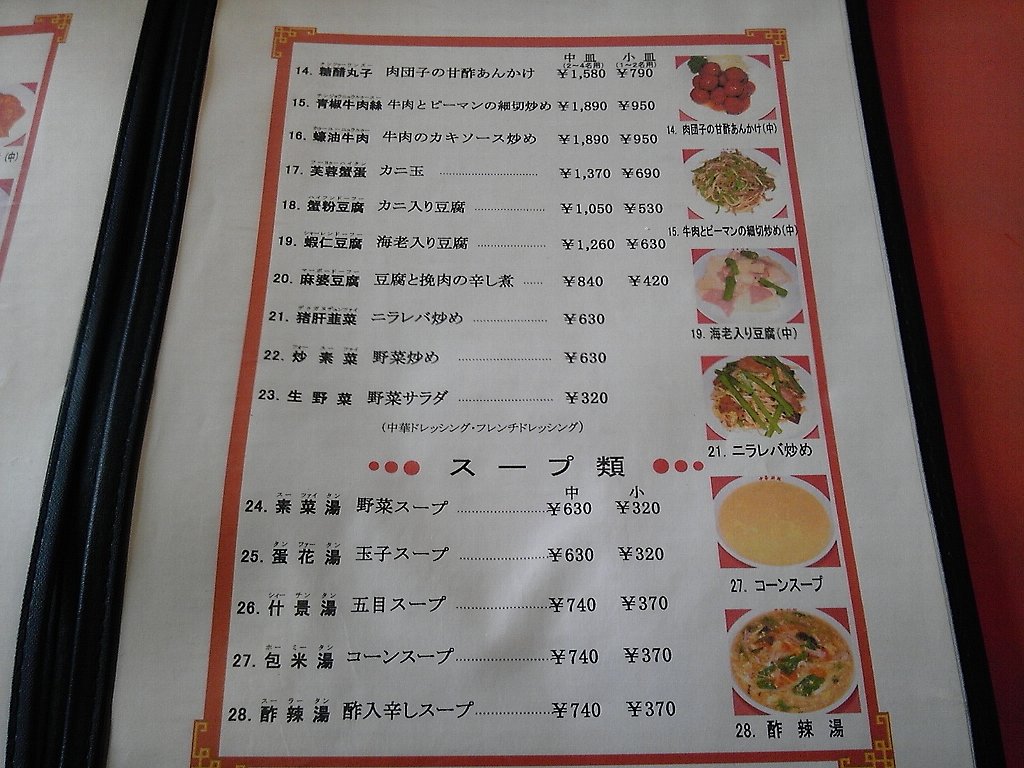 中皿 小皿
(2～4名用) (1～2名用)
14. 糖醋丸子 肉団子の甘酢あんかけ ￥1,580 ￥790
15. 青椒牛肉絲 牛肉とピーマンの細切炒め ￥1,890 ￥950
16. 蠔油牛肉 牛肉のカキソース炒め ￥1,890 ￥950
17. 芙蓉蟹蛋 カニ玉 ……………… ￥1,370 ￥690
18. 蟹粉豆腐 カニ入り豆腐 ……………… ￥1,050 ￥530
19. 蝦仁豆腐 海老入り豆腐 ……………… ￥1,260 ￥630
マーボードーフー
20. 麻婆豆腐 豆腐と挽肉の辛し煮 …… ￥840 ￥420
21. 猪肝韮菜 ニラレバ炒め ……………… ￥630
22. 炒素菜 野菜炒め ……………… ￥630
23. 生野菜 野菜サラダ ……………… ￥320
(中華ドレッシング・フレンチドレッシング)
スープ類
中 小
スー ツァイ タン
24. 素菜湯 野菜スープ ……………… ￥630 ￥320
タン ファー タン
25. 蛋花湯 玉子スープ ……………… ￥630 ￥320
シィー チン タン
26. 什景湯 五目スープ ……………… ￥740 ￥370
ホー ミー タン
27. 包米湯 コーンスープ ……………… ￥740 ￥370
スー ラー タン
28. 酢辣湯 酢入辛しスープ ……………… ￥740 ￥370
14. 肉団子の甘酢あんかけ(中)
15. 牛肉とピーマンの細切炒め(中)
19. 海老入り豆腐(中)
21. ニラレバ炒め
27. コーンスープ
28. 酢辣湯
(中)